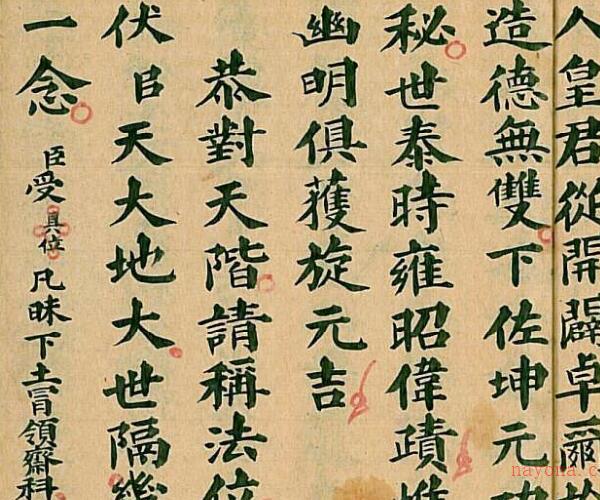 人皇君從開闢卓爾於
造德無雙下佐坤元
秘世泰時雍昭偉蹟惟
幽明俱獲旋元吉
恭對天階請稱法位
伏日天大地大世隔幾
一念臣受具位凡昧下士冒領齋科
nayona.c